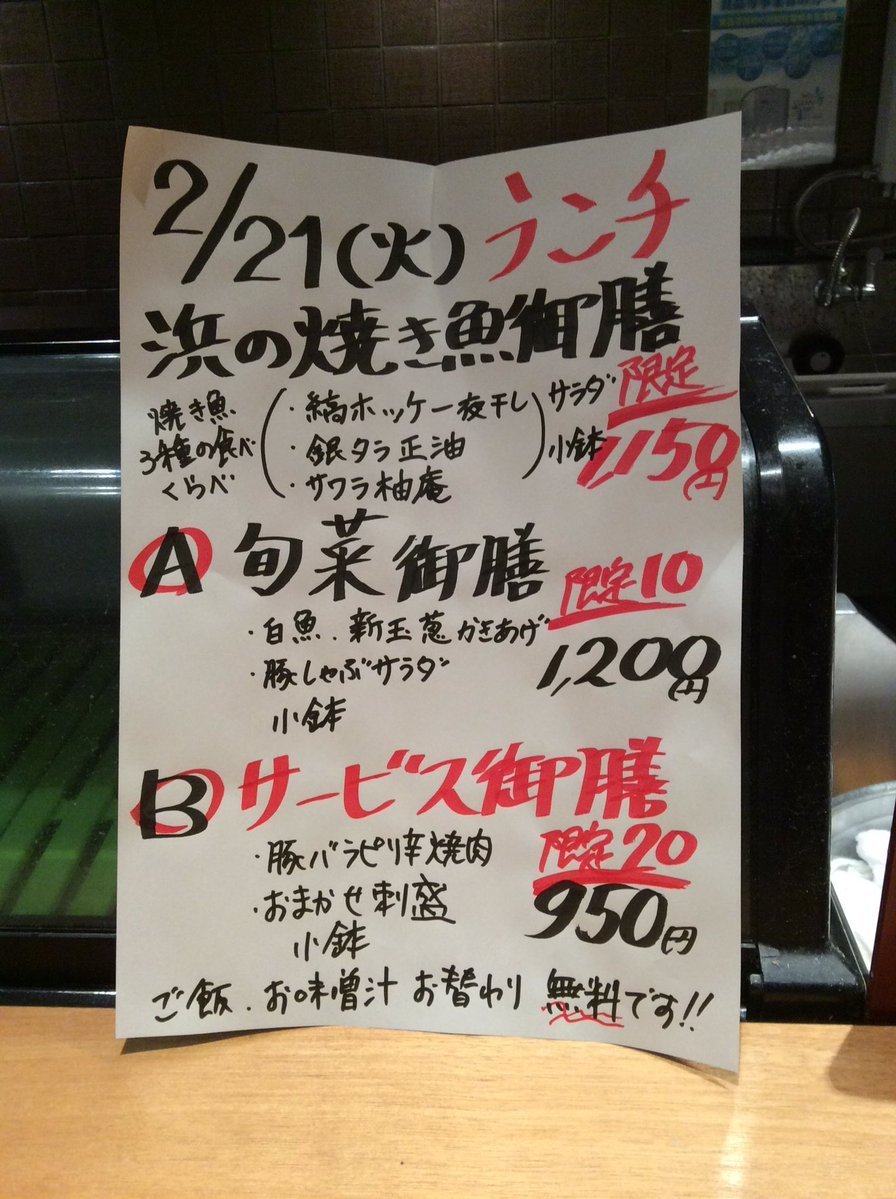 2/21(火) ランチ
浜の焼き魚御膳
限定
焼き魚
3種の食べ
くらべ
・縞ホッケ一夜干し
・銀タラ正油
・サワラ柚庵
サラダ
小鉢
1,150円
A 旬菜御膳
限定10
・白魚.新玉葱かきあげ
・豚しゃぶサラダ
小鉢
1,200円
B サービス御膳
限定20
・豚バラピリ辛焼肉
・おまかせ刺盛
小鉢
950円
ご飯.お味噌汁 お替わり 無料です!!